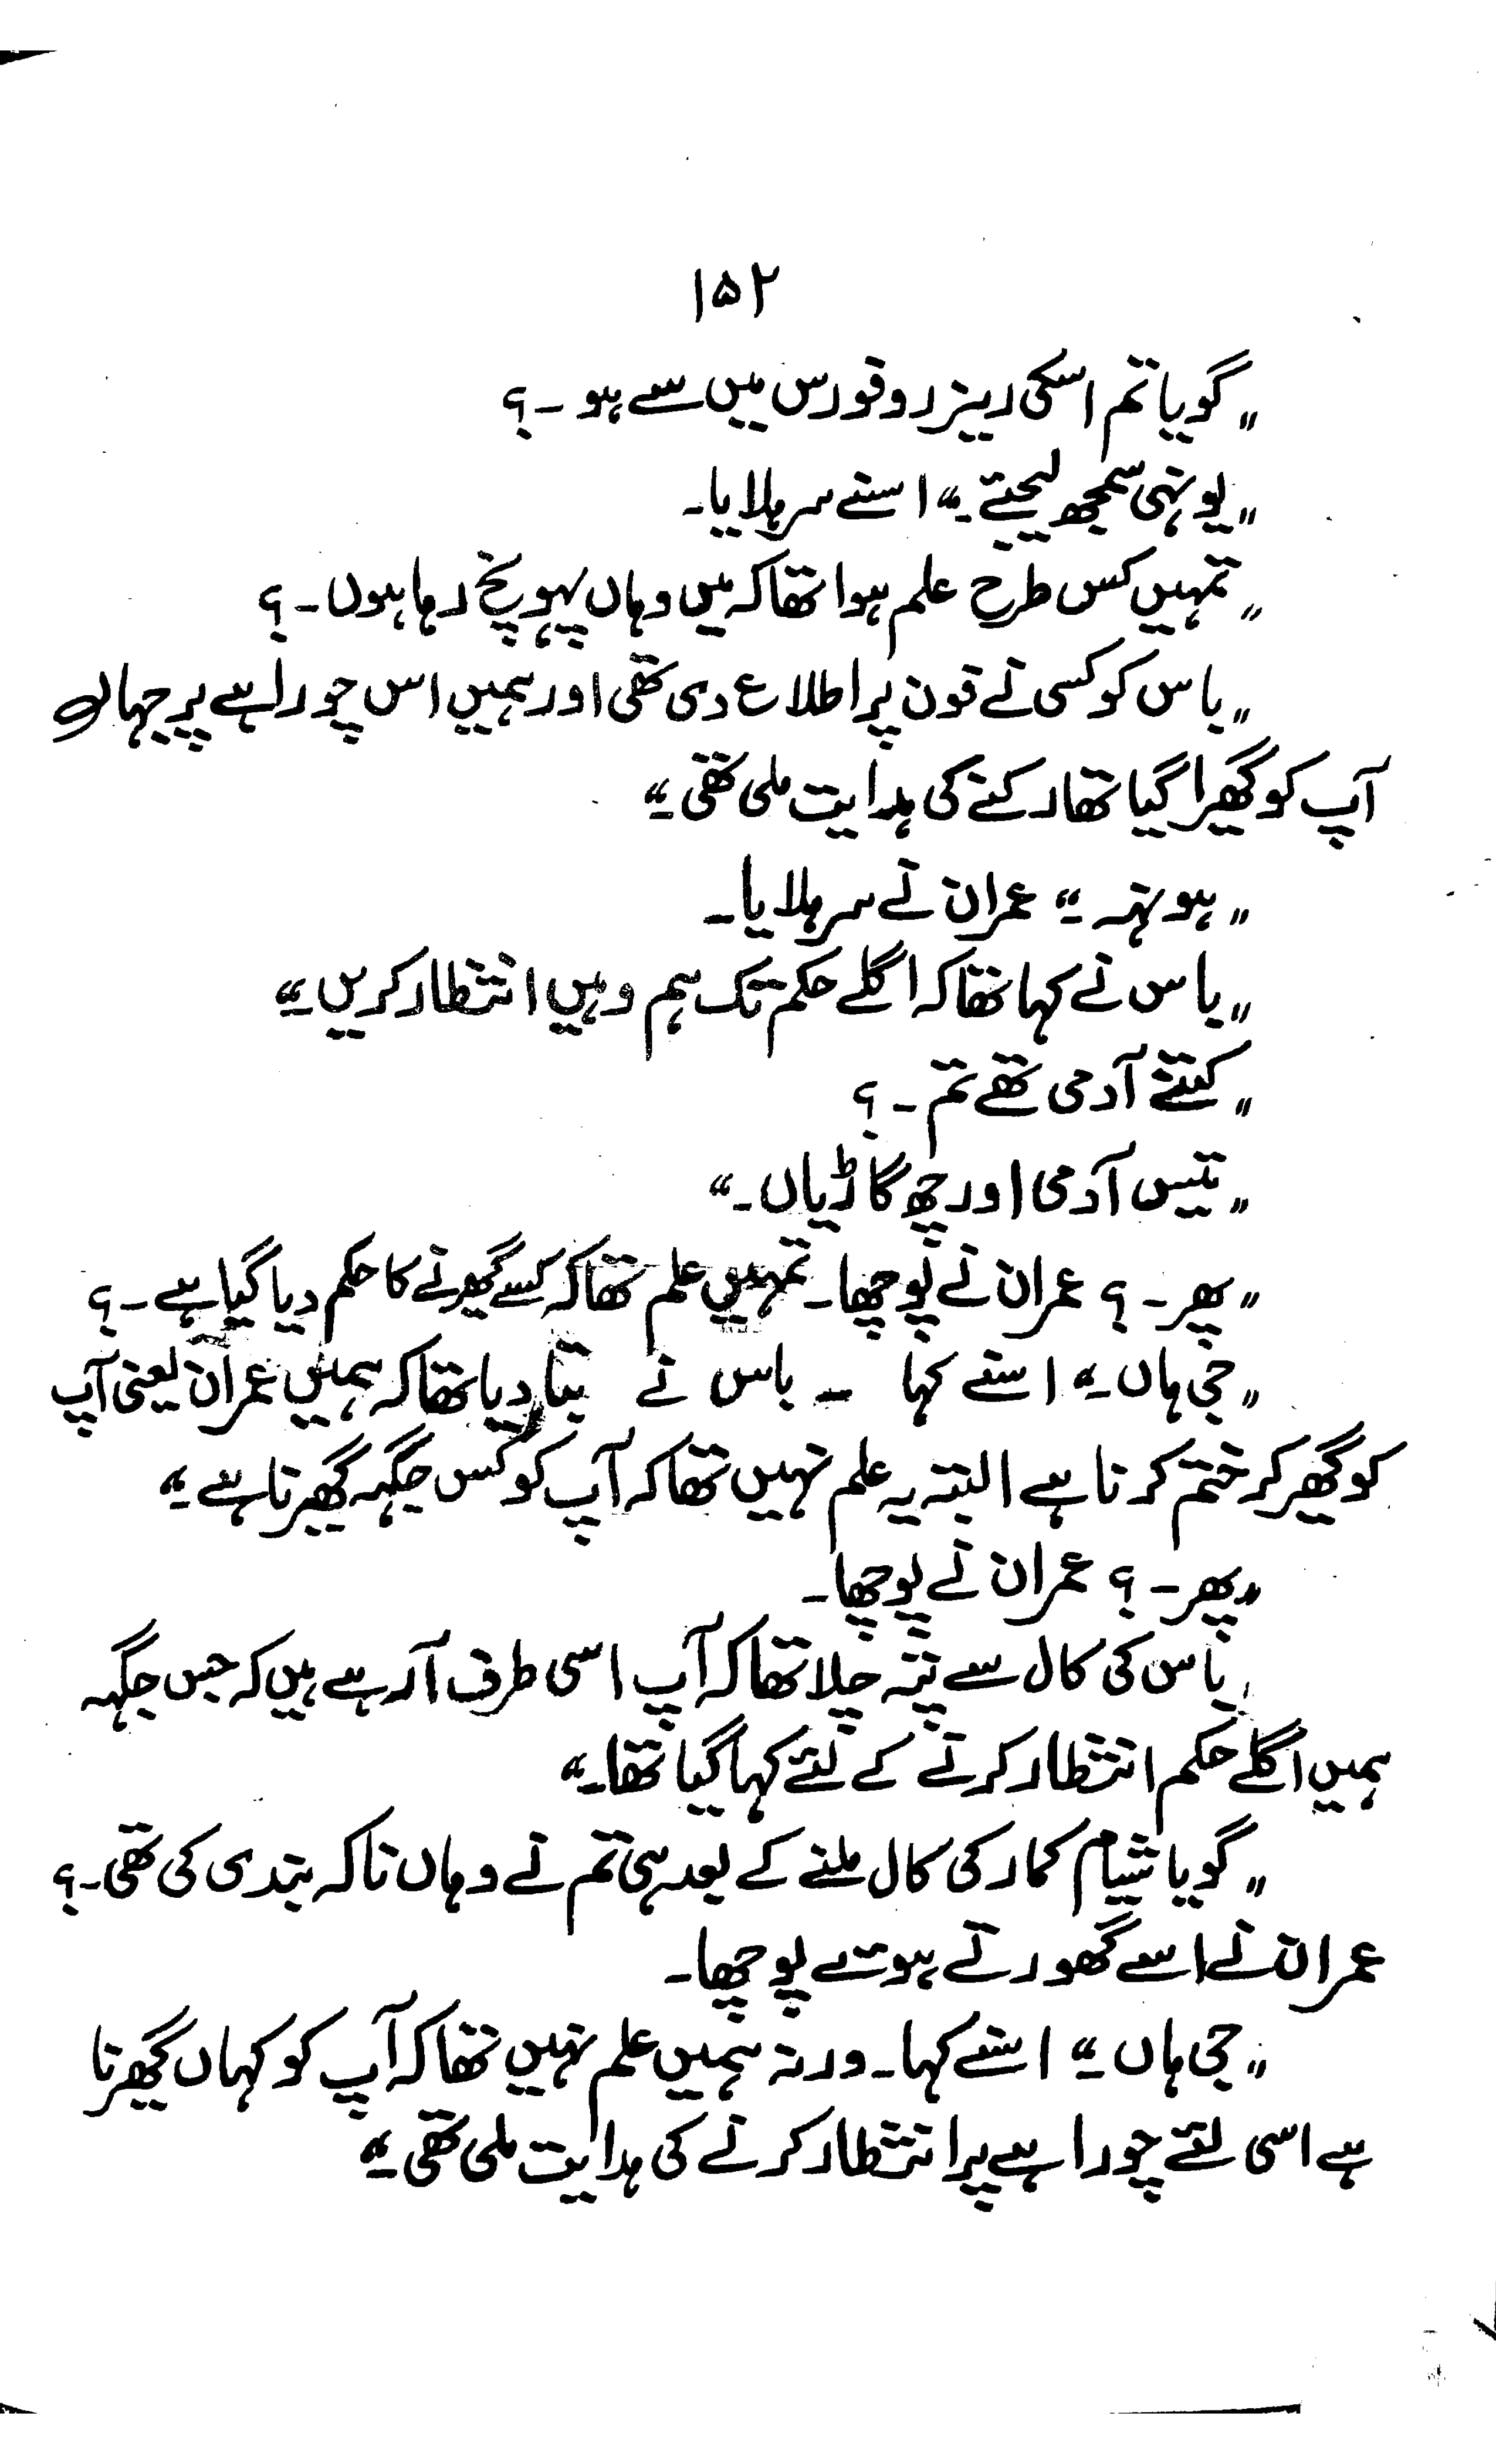 ۱۵۲
"گویا تم اسکی ریزرو فورس میں سے ہو۔؟
"یونہی سمجھ لیجئے۔" اسنے سر ہلایا۔
"تمہیں کس طرح علم ہوا تھا کہ میں وہاں پہونچ رہا ہوں۔؟
"باس کو کسی نے فون پر اطلاع دی تھی اور ہمیں اس چوراہے پر جہاں
آپ کو گھیرا گیا تھا رکنے کی ہدایت ملی تھی۔"
"ہونہہ۔" عمران نے سر ہلایا۔
"باس نے کہا تھا کہ اگلے حکم تک ہم وہیں انتظار کریں۔"
"کتنے آدمی تھے تم۔؟
"تیس آدمی اور چھ گاڑیاں۔"
"پھر۔؟ عمران نے پوچھا۔ تمہیں علم تھا کہ کسے گھیرنے کا حکم دیا گیا ہے۔؟
"جی ہاں۔" اسنے کہا ۔ باس نے بتا دیا تھا کہ ہمیں عمران یعنی آپ
کو گھیر کر ختم کرنا ہے البتہ یہ علم نہیں تھا کہ آپ کو کس جگہہ گھیرنا ہے۔"
"پھر۔؟ عمران نے پوچھا۔
باس کی کال سے پتہ چلا تھا کہ آپ اسی طرف آرہے ہیں کہ جس جگہہ
ہمیں اگلے حکم انتظار کرنے کے لئے کہا گیا تھا۔"
"گویا شیام کمار کی کال ملنے کے بعد ہی تم نے وہاں ناکہ بندی کی تھی۔؟
عمران نے اسے گھورتے ہوئے پوچھا۔
"جی ہاں۔" اسنے کہا۔ ورنہ ہمیں علم نہیں تھا کہ آپ کو کہاں گھیرنا
ہے اسی لئے چوراہے پر انتظار کرنے کی ہدایت ملی تھی۔"